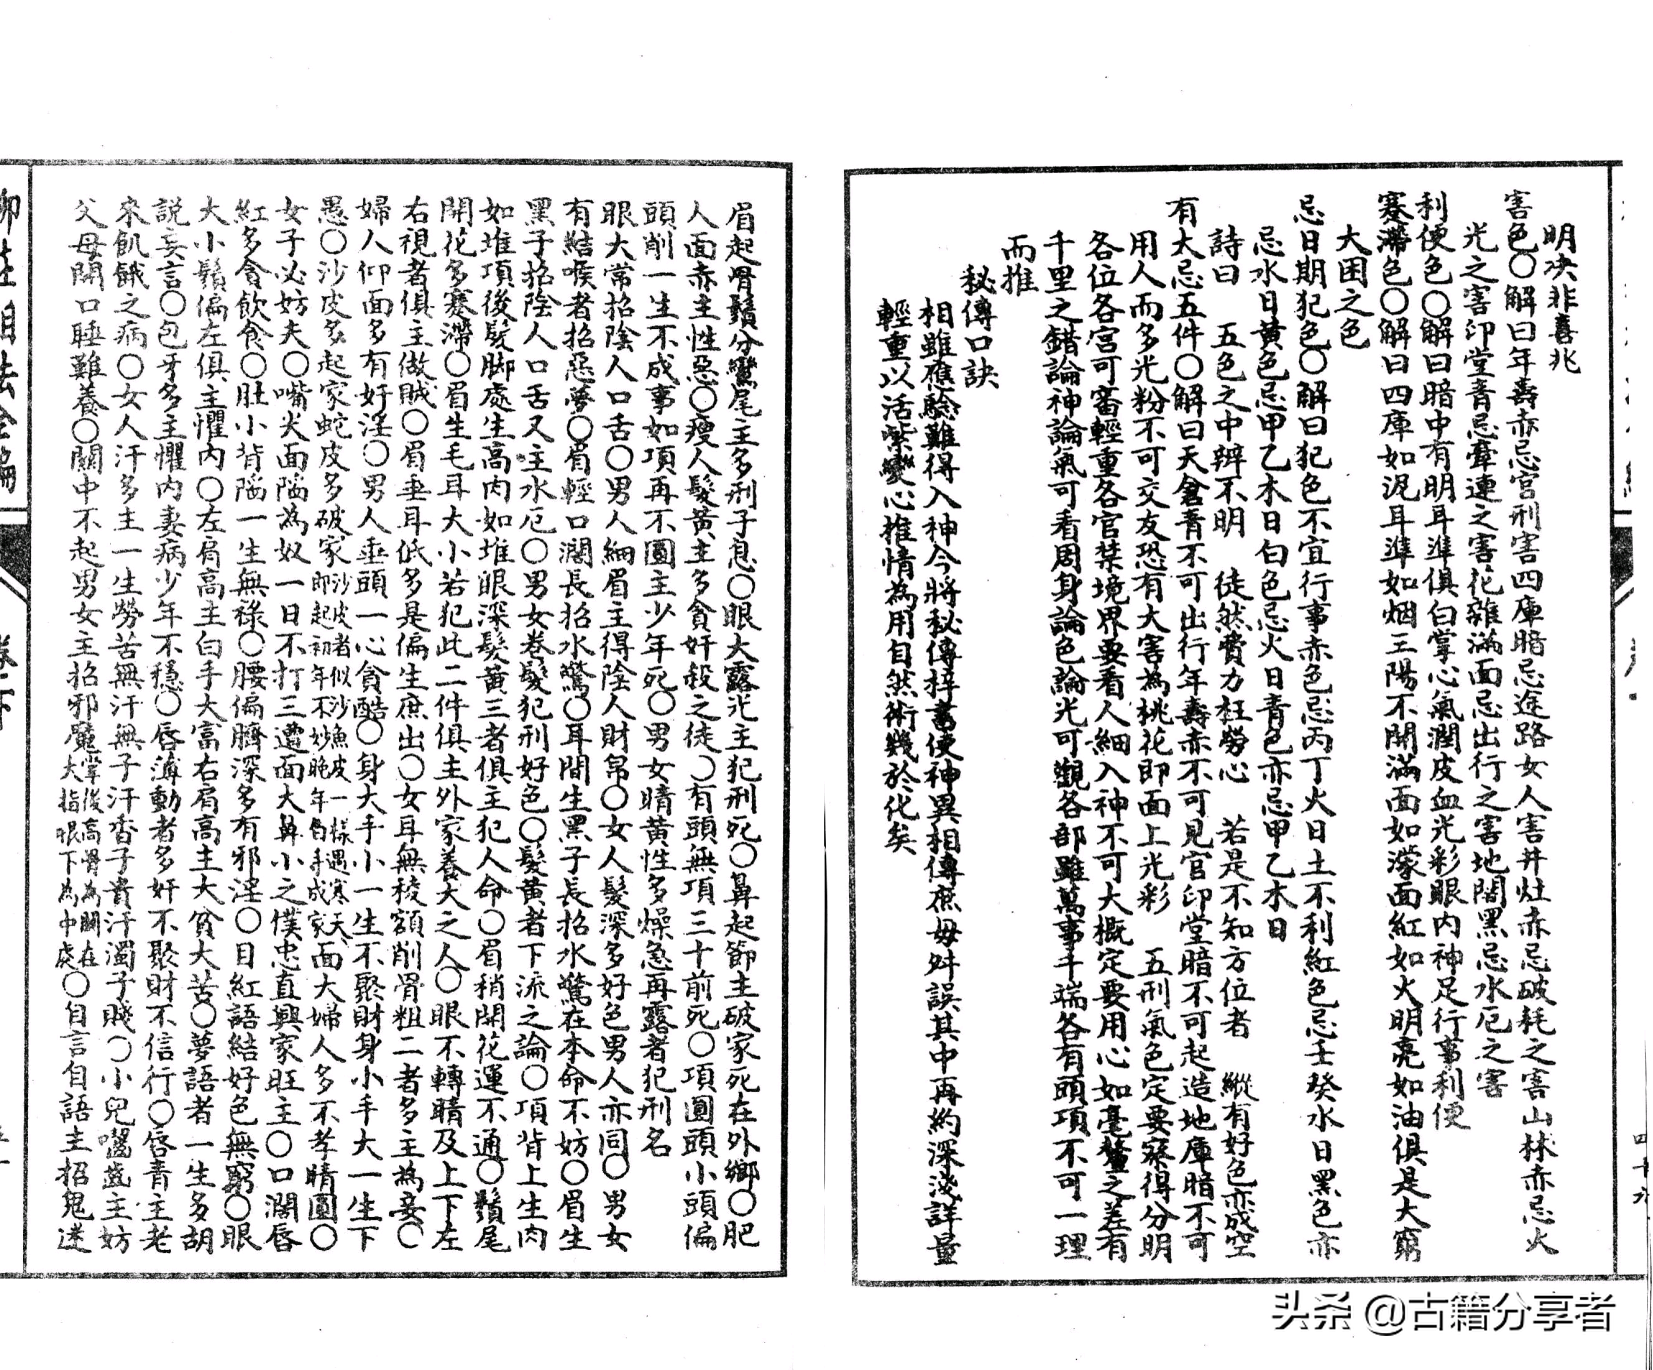 明决非喜兆
害色〇解曰年壽赤忌宫刑害四庫暗忌途路女人害井灶赤忌破耗之害山林赤忌火
光之害印堂青忌牽連之害花雜滿面忌出行之害地閣黑忌水厄之害
利便色〇解曰暗中有明耳準俱白掌心氣潤皮血光彩眼内神足行事利便
蹇滯色〇解曰四庫如泥耳準如烟三陽不開滿面如濛面紅如火明亮如油俱是大窮
大困之色
忌日期犯色〇解曰犯色不宜行事赤色忌丙丁火日土不利紅色忌壬癸水日黑色亦
忌水日黄色忌甲乙木日白色忌火日青色亦忌甲乙木日
詩曰　五色之中辨不明　徒然費力枉勞心　若是不知方位者　縱有好色亦成空
有大忌五件〇解曰天倉青不可出行年壽赤不可見官印堂暗不可起造地庫暗不可
用人而多光粉不可交友恐有大害為桃花即面上光彩　五刑氣色定要察得分明
各位各宫可審輕重各官禁境界要看人細入神不可大概定要用心如毫釐之差有
千里之錯論神論氣可看周身論色論光可觀各部雖萬事千端各有頭項不可一理
而推
秘傳口訣
相雖應驗難得入神今將秘傳梓書便神異相傳庶毋舛誤其中再約深淺詳量
輕重以活潑變心推情為用自然術幾於化矣
眉起骨鬚分鸞尾主多刑子息〇眼大露光主犯刑死〇鼻起節主破家死在外鄉〇肥
人面赤主性惡〇瘦人髮黄主多貪奸殺之徒〇有頭無項三十前死〇項圓頭小頭偏
頭削一生不成事如項再不圓主少年死〇男女睛黄性多燥急再露者犯刑名
眼大常招陰人口舌〇男人細眉主得陰人財帛〇女人髮深多好色男人亦同〇男女
有結喉者招惡夢〇眉輕口濶長招水驚〇耳間生黑子長招水驚在本命不妨〇眉生
黑子招陰人口舌又主水厄〇男女卷髮犯刑好色〇髮黄者下流之論〇項背上生肉
如堆項後髮脚處生高肉如堆眼深髮黄三者俱主犯人命〇眉稍開花運不通〇鬚尾
開花多蹇滯〇眉生毛耳大小若犯此二件俱主外家養大之人〇眼不轉睛及上下左
右視者俱主做賊〇眉垂耳低多是偏生庶出〇女耳無稜額削骨粗二者多主為妾〇
婦人仰面多有好淫〇男人垂頭一心貪酷〇身大手小一生不聚財身小手大一生下
愚〇沙皮多起家蛇皮多破家沙皮者似沙魚皮一樣遇寒天即起初年不妙晚年白手成家面大婦人多不孝睛圓〇
女子必妨夫〇嘴尖面陷為奴一日不打三遭面大鼻小之僕忠直興家旺主〇口濶唇
紅多貪飲食〇肚小背陷一生無祿〇腰偏臍深多有邪淫〇目紅語結好色無窮〇眼
大小鬚偏左俱主懼内〇左肩高主白手大富右肩高主大貧大苦〇夢語者一生多胡
説妄言〇包牙多主懼内妻病少年不穩〇唇薄動者多奸不聚財不信行〇唇青主老
來飢餓之病〇女人汗多主一生勞苦無汗無子汗香子貴汗濁子賤〇小兒囓齒主妨
父母開口睡難養〇關中不起男女主招邪魔掌後高骨為關在大指根下為中處〇自言自語主招鬼迷
柳莊相法全編
卷下
头条 @古籍分享者